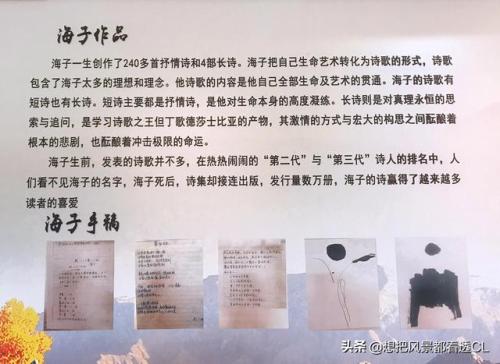 海子作品
海子一生创作了240多首抒情诗和4部长诗。海子把自己生命艺术转化为诗歌的形式，诗歌
包含了海子太多的理想和理念。他诗歌的内容是他自己全部生命及艺术的贯通。海子的诗歌有
短诗也有长诗。短诗主要都是抒情诗，是他对生命本身的高度凝练。长诗则是对真理永恒的思
索与追问，是学习诗歌之王但丁歌德莎士比亚的产物，其激情的方式与宏大的构思之间酝酿着
根本的悲剧，也酝酿着冲击极限的命运。
海子生前，发表的诗歌并不多，在热热闹闹的“第二代”与“第三代”诗人的排名中，人
们看不见海子的名字，海子死后，诗集却接连出版，发行量数万册，海子的诗赢得了越来越多
读者的喜爱
海子手稿
头条@想把风景都看透CL